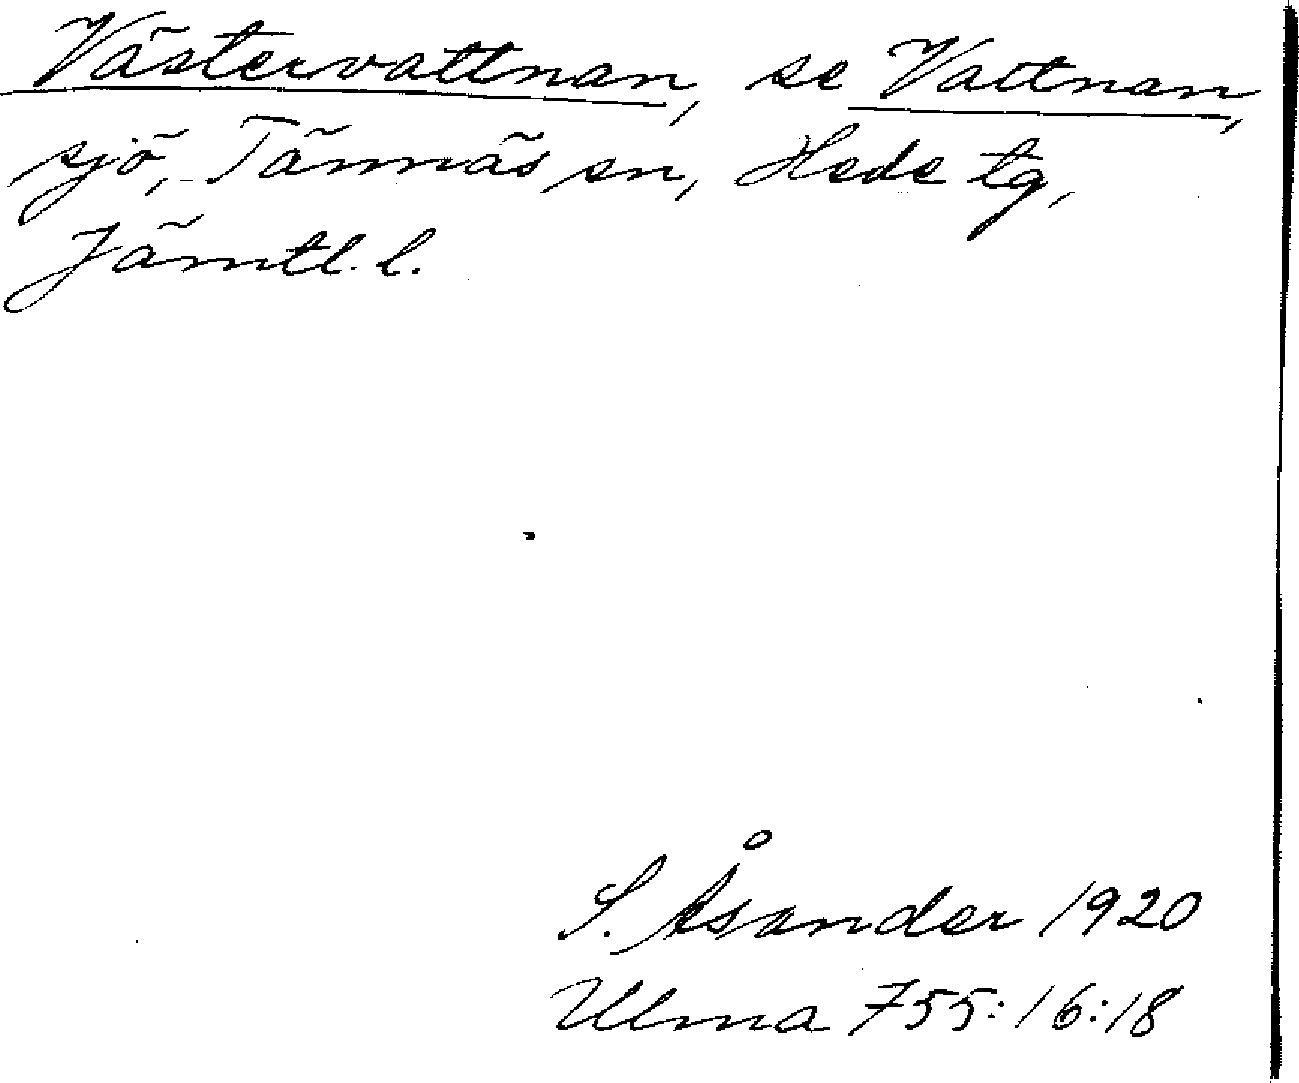 Västervattnan, se Vattnan,
sjö, Tännäs sn, Hede tg,
Jämtl. l.
S. Åsander 1920
Ulma 755:16:18